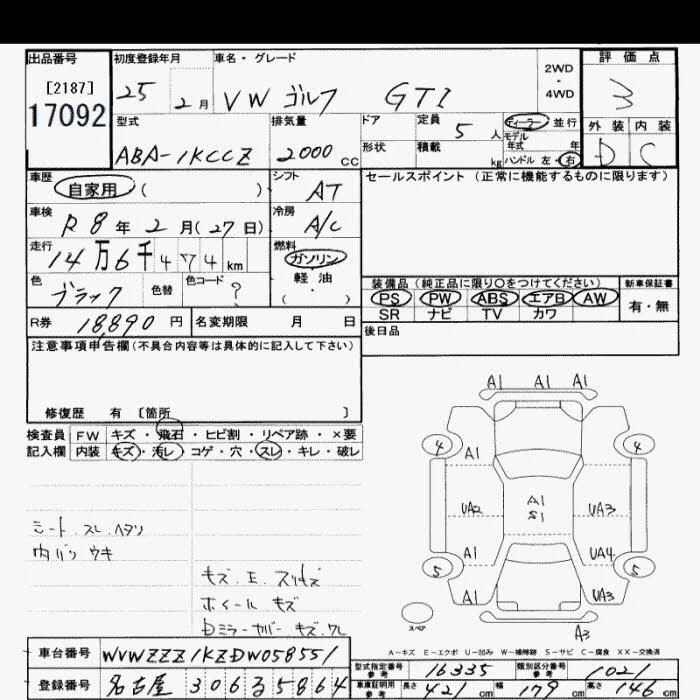 出品番号 初度登録年月 車名・グレード 評価点
[2187] 25年 2月 VW ゴルフ GTI 2WD・4WD 3
17092
型式 排気量 ドア 定員 ディーラー 並行 外装 内装
ABA-1KCCZ 2000cc 5人 モデル年式 年 D C
形状 積載 kg ハンドル 左・右
車歴 自家用 ( ) シフト AT セールスポイント (正常に機能するものに限ります)
車検 R8年2月(27日) 冷房 A/C
走行 14万6千474km 燃料 ガソリン
軽油
( )
色 ブラック 色替 色コード ? 装備品 (純正品に限り○をつけてください) 新車保証書
PS PW ABS エアB AW 有・無
SR ナビ TV カワ
R券 18,890円 名変期限 月 日 後日品
注意事項申告欄 (不具合内容等は具体的に記入して下さい)
修復歴 有 〔箇所 〕
検査員 FW キズ・飛石・ヒビ割・リペア跡・×要
記入欄 内装 キズ・汚レ・コゲ・穴・スレ・キレ・破レ
A1 A1 A1
4 A1 4
UA2 A1 S1 UA3
A1 UA4
5 5
A1 UA3
スペア A3
シート スレ ヘタリ
内バリ ウキ
キズ.E.スリキズ
ホイール キズ
Dミラーカバー キズ.ワレ
A―キズ E―エクボ U―凹み W―補修跡 S―サビ C―腐食 XX―交換済
車台番号 WVWZZZ1KZDW058551
型式指定番号 参考 16335 類別区分番号 参考 1021
登録番号 名古屋 306 ろ 5864
車庫証明用 参考 長さ 421cm 幅 179cm 高さ 146cm